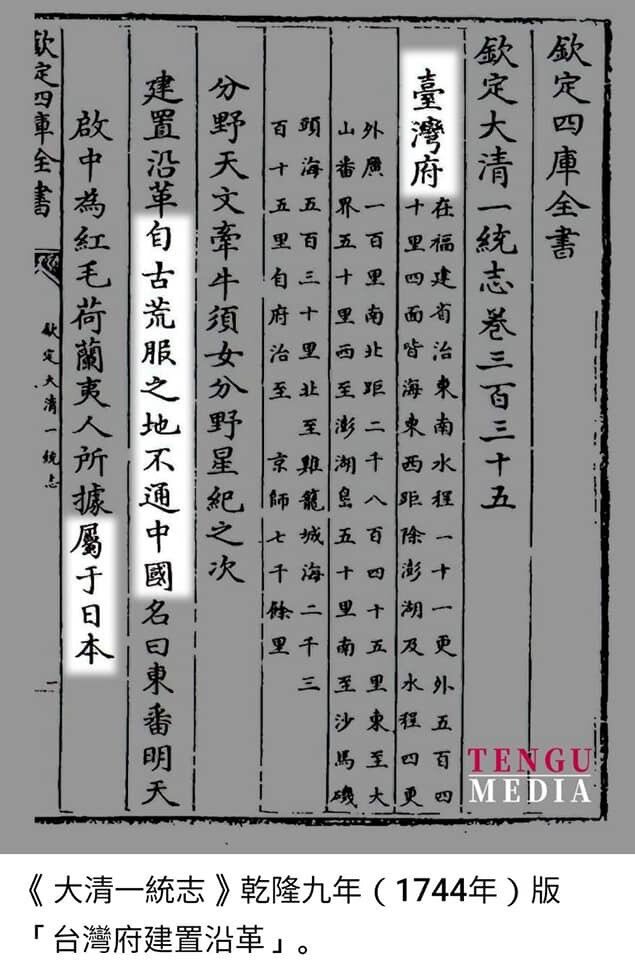 欽定四庫全書
欽定大清一統志卷三百三十五
臺灣府
在福建省治東南水程一十一更外五百四
十里四面皆海東西距除澎湖及水程四更
外廣一百里南北距二千八百四十五里東至大
山番界五十里西至澎湖島五十里南至沙馬磯
頭海五百三十里北至雞籠城海二千三
百十五里自府治至 京師七千餘里
分野天文牽牛須女分野星紀之次
建置沿革自古荒服之地不通中國名曰東番明天
啟中為紅毛荷蘭夷人所據屬于日本
欽定四庫全書
欽定大清一統志
一
TENGU
MEDIA
《大清一統志》乾隆九年（1744年）版
「台灣府建置沿革」。